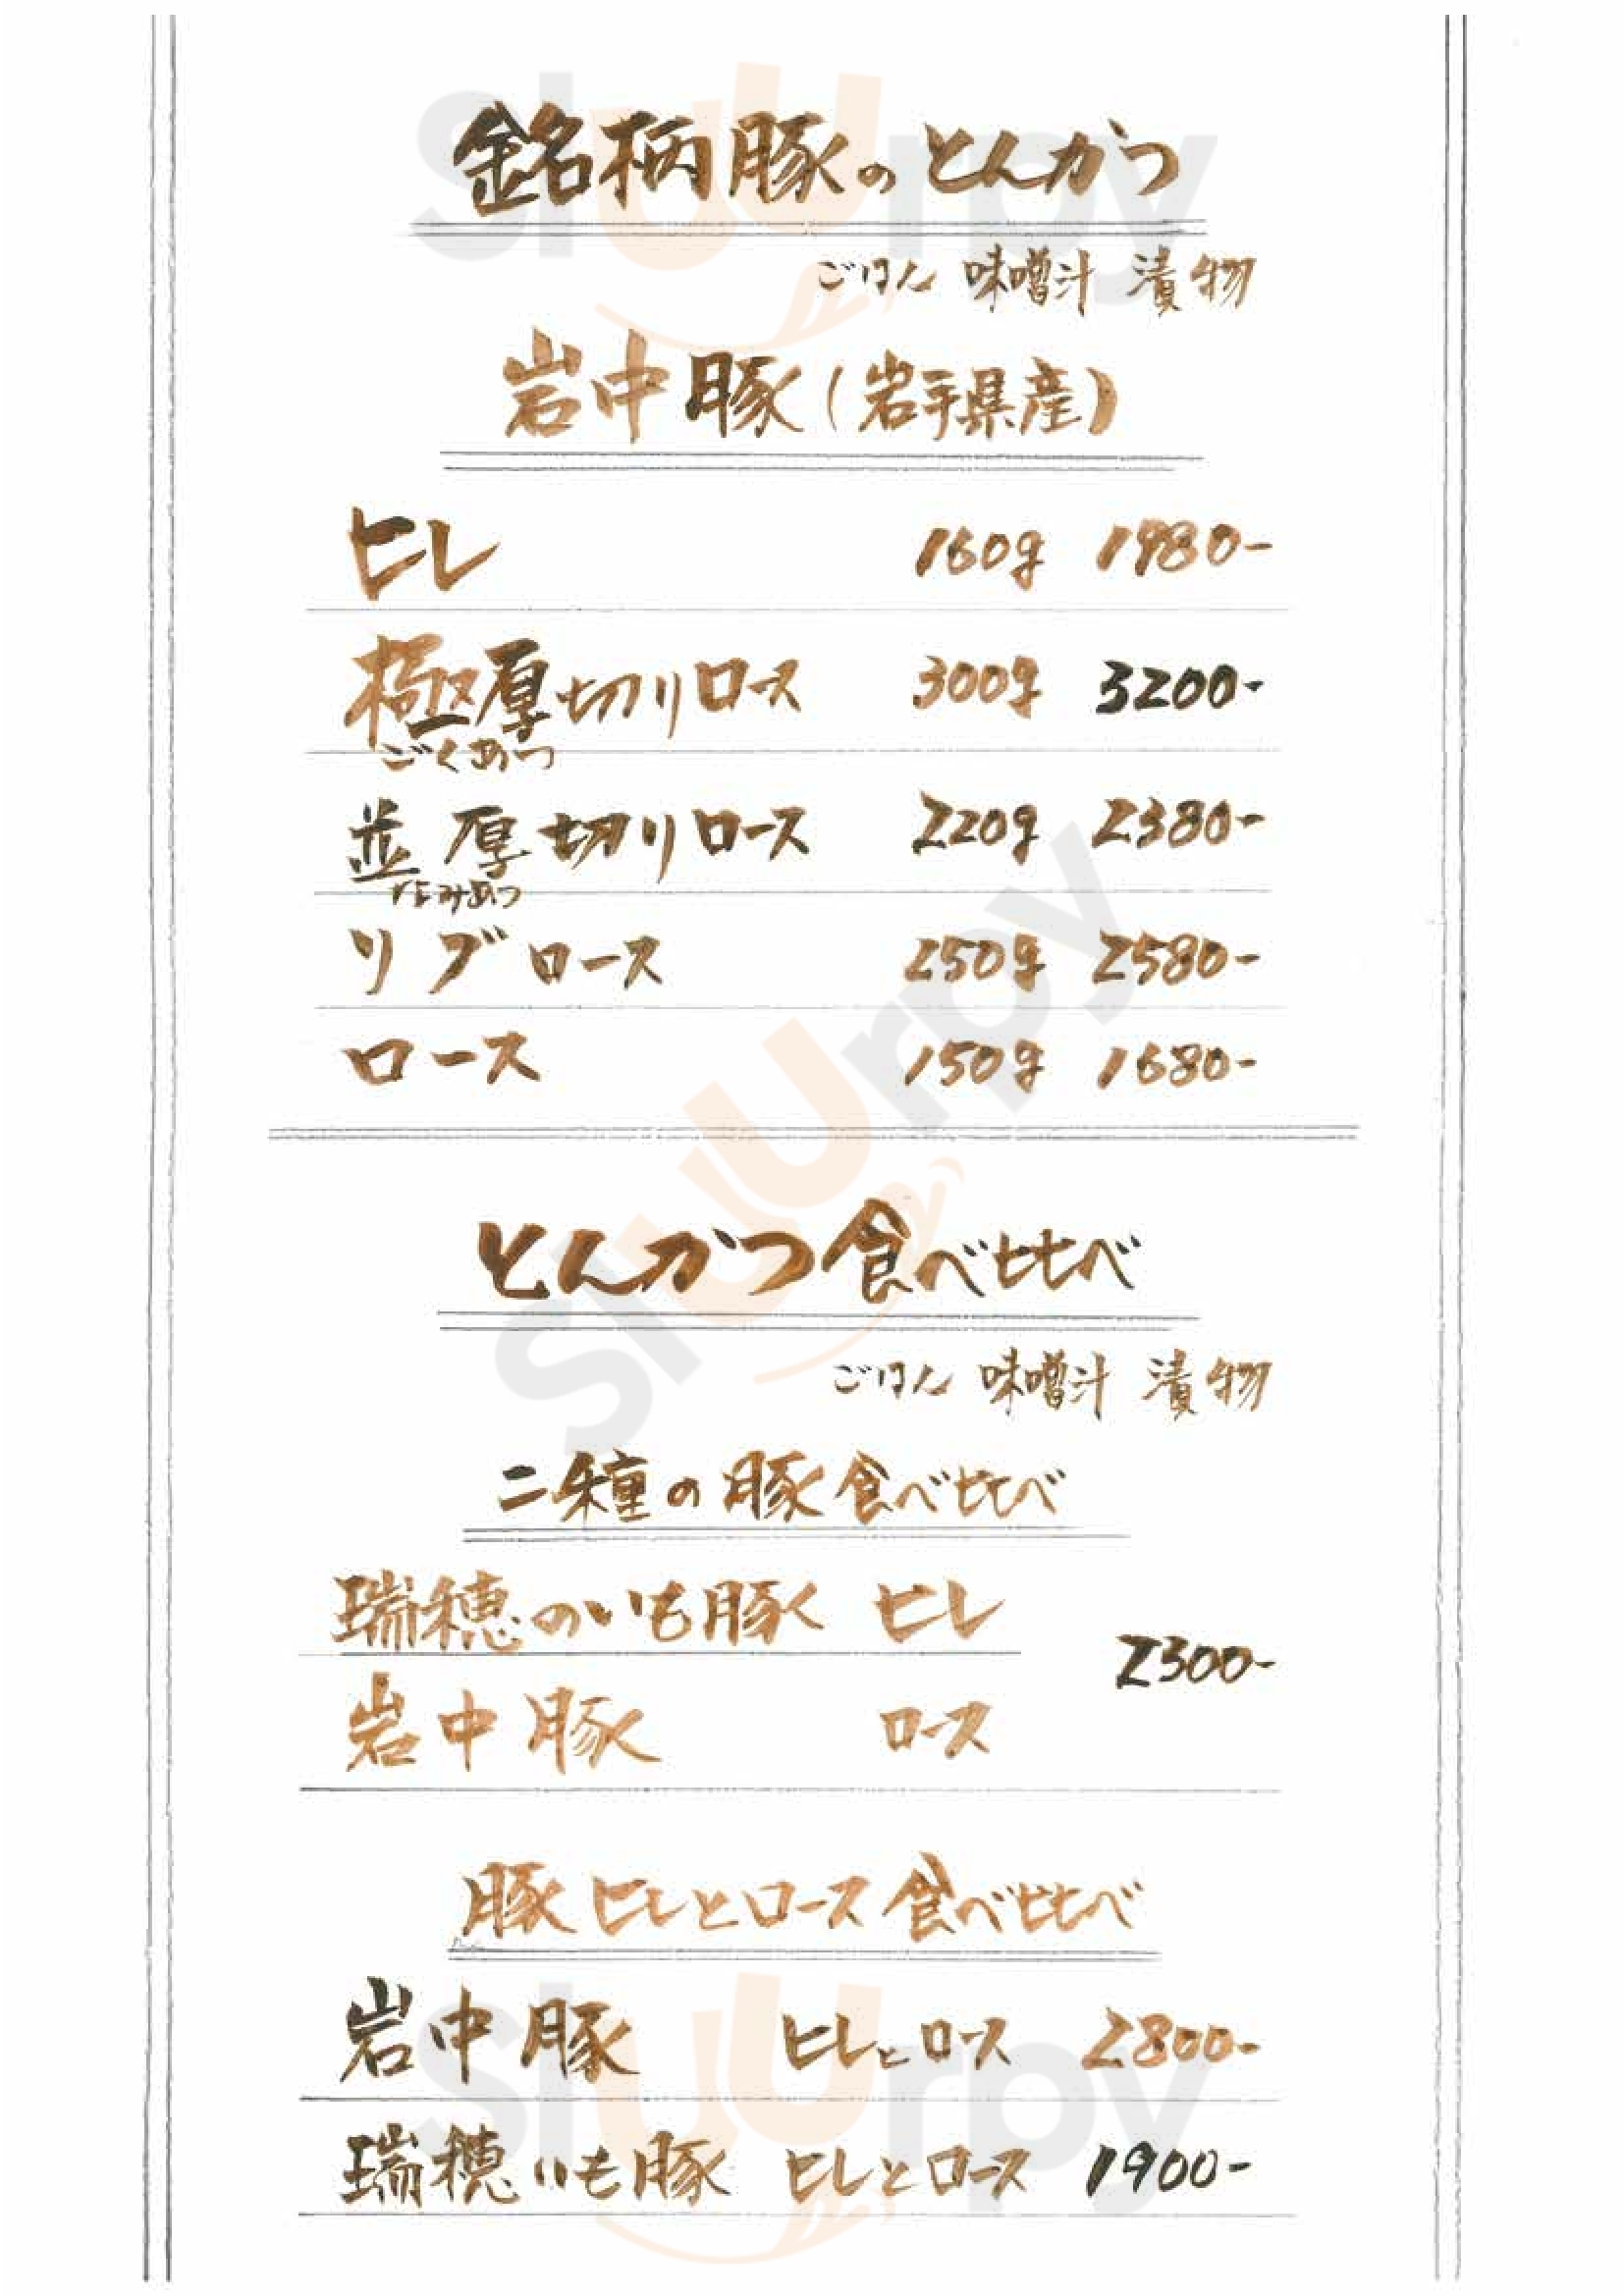 銘柄豚のとんかつ
ごはん 味噌汁 漬物
岩中豚(岩手県産)
ヒレ 160g 1980-
極厚切りロース 300g 3200-
ごくあつ
並厚切りロース 220g 2380-
なみあつ
リブロース 250g 2580-
ロース 150g 1680-
とんかつ食べ比べ
ごはん 味噌汁 漬物
二種の豚食べ比べ
瑞穂のいも豚 ヒレ
2300-
岩中豚 ロース
豚ヒレとロース食べ比べ
岩中豚 ヒレとロース 2800-
瑞穂いも豚 ヒレとロース 1900-
sluurpy
sluurpy
sluurpy